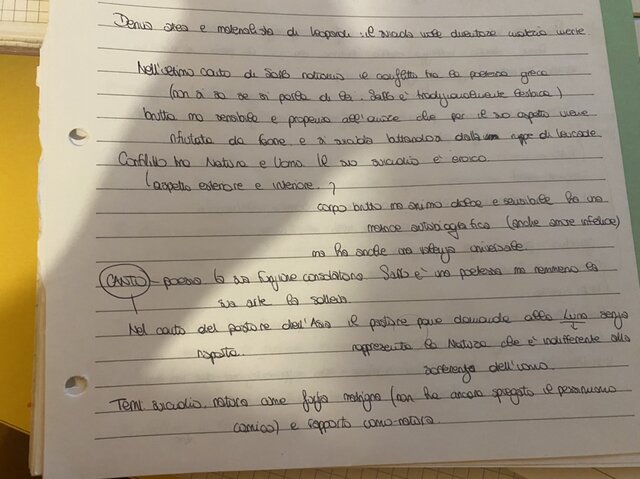 Deriva atea e materialista di Leopardi: il suicida vuole diventare materia inerte.
Nell'ultimo canto di Saffo notiamo il conflitto tra la poetessa greca
(non si sa se si parla di lei. Saffo è tradizionalmente lesbica)
brutta ma sensibile e propensa all'amore che per il suo aspetto viene
rifiutata da Faone e si suicida buttandosi dalla rupe di Leucade.
Conflitto tra Natura e Uomo. Il suo suicidio è eroico.
(aspetto esteriore e interiore.)
corpo brutto ma animo dolce e sensibile ha una
matrice autobiografica (anche amore infelice)
ma ha anche una valenza universale
CANTO - poesia la sua funzione consolatoria Saffo è una poetessa ma nemmeno la
sua arte la solleva
Nel canto del pastore dell'Asia il pastore pone domande alla Luna senza
risposta. rappresenta la Natura che è indifferente alla
sofferenza dell'uomo.
Temi: suicidio, natura come forza maligna (non ha ancora spiegato il pessimismo
cosmico) e rapporto uomo-natura.